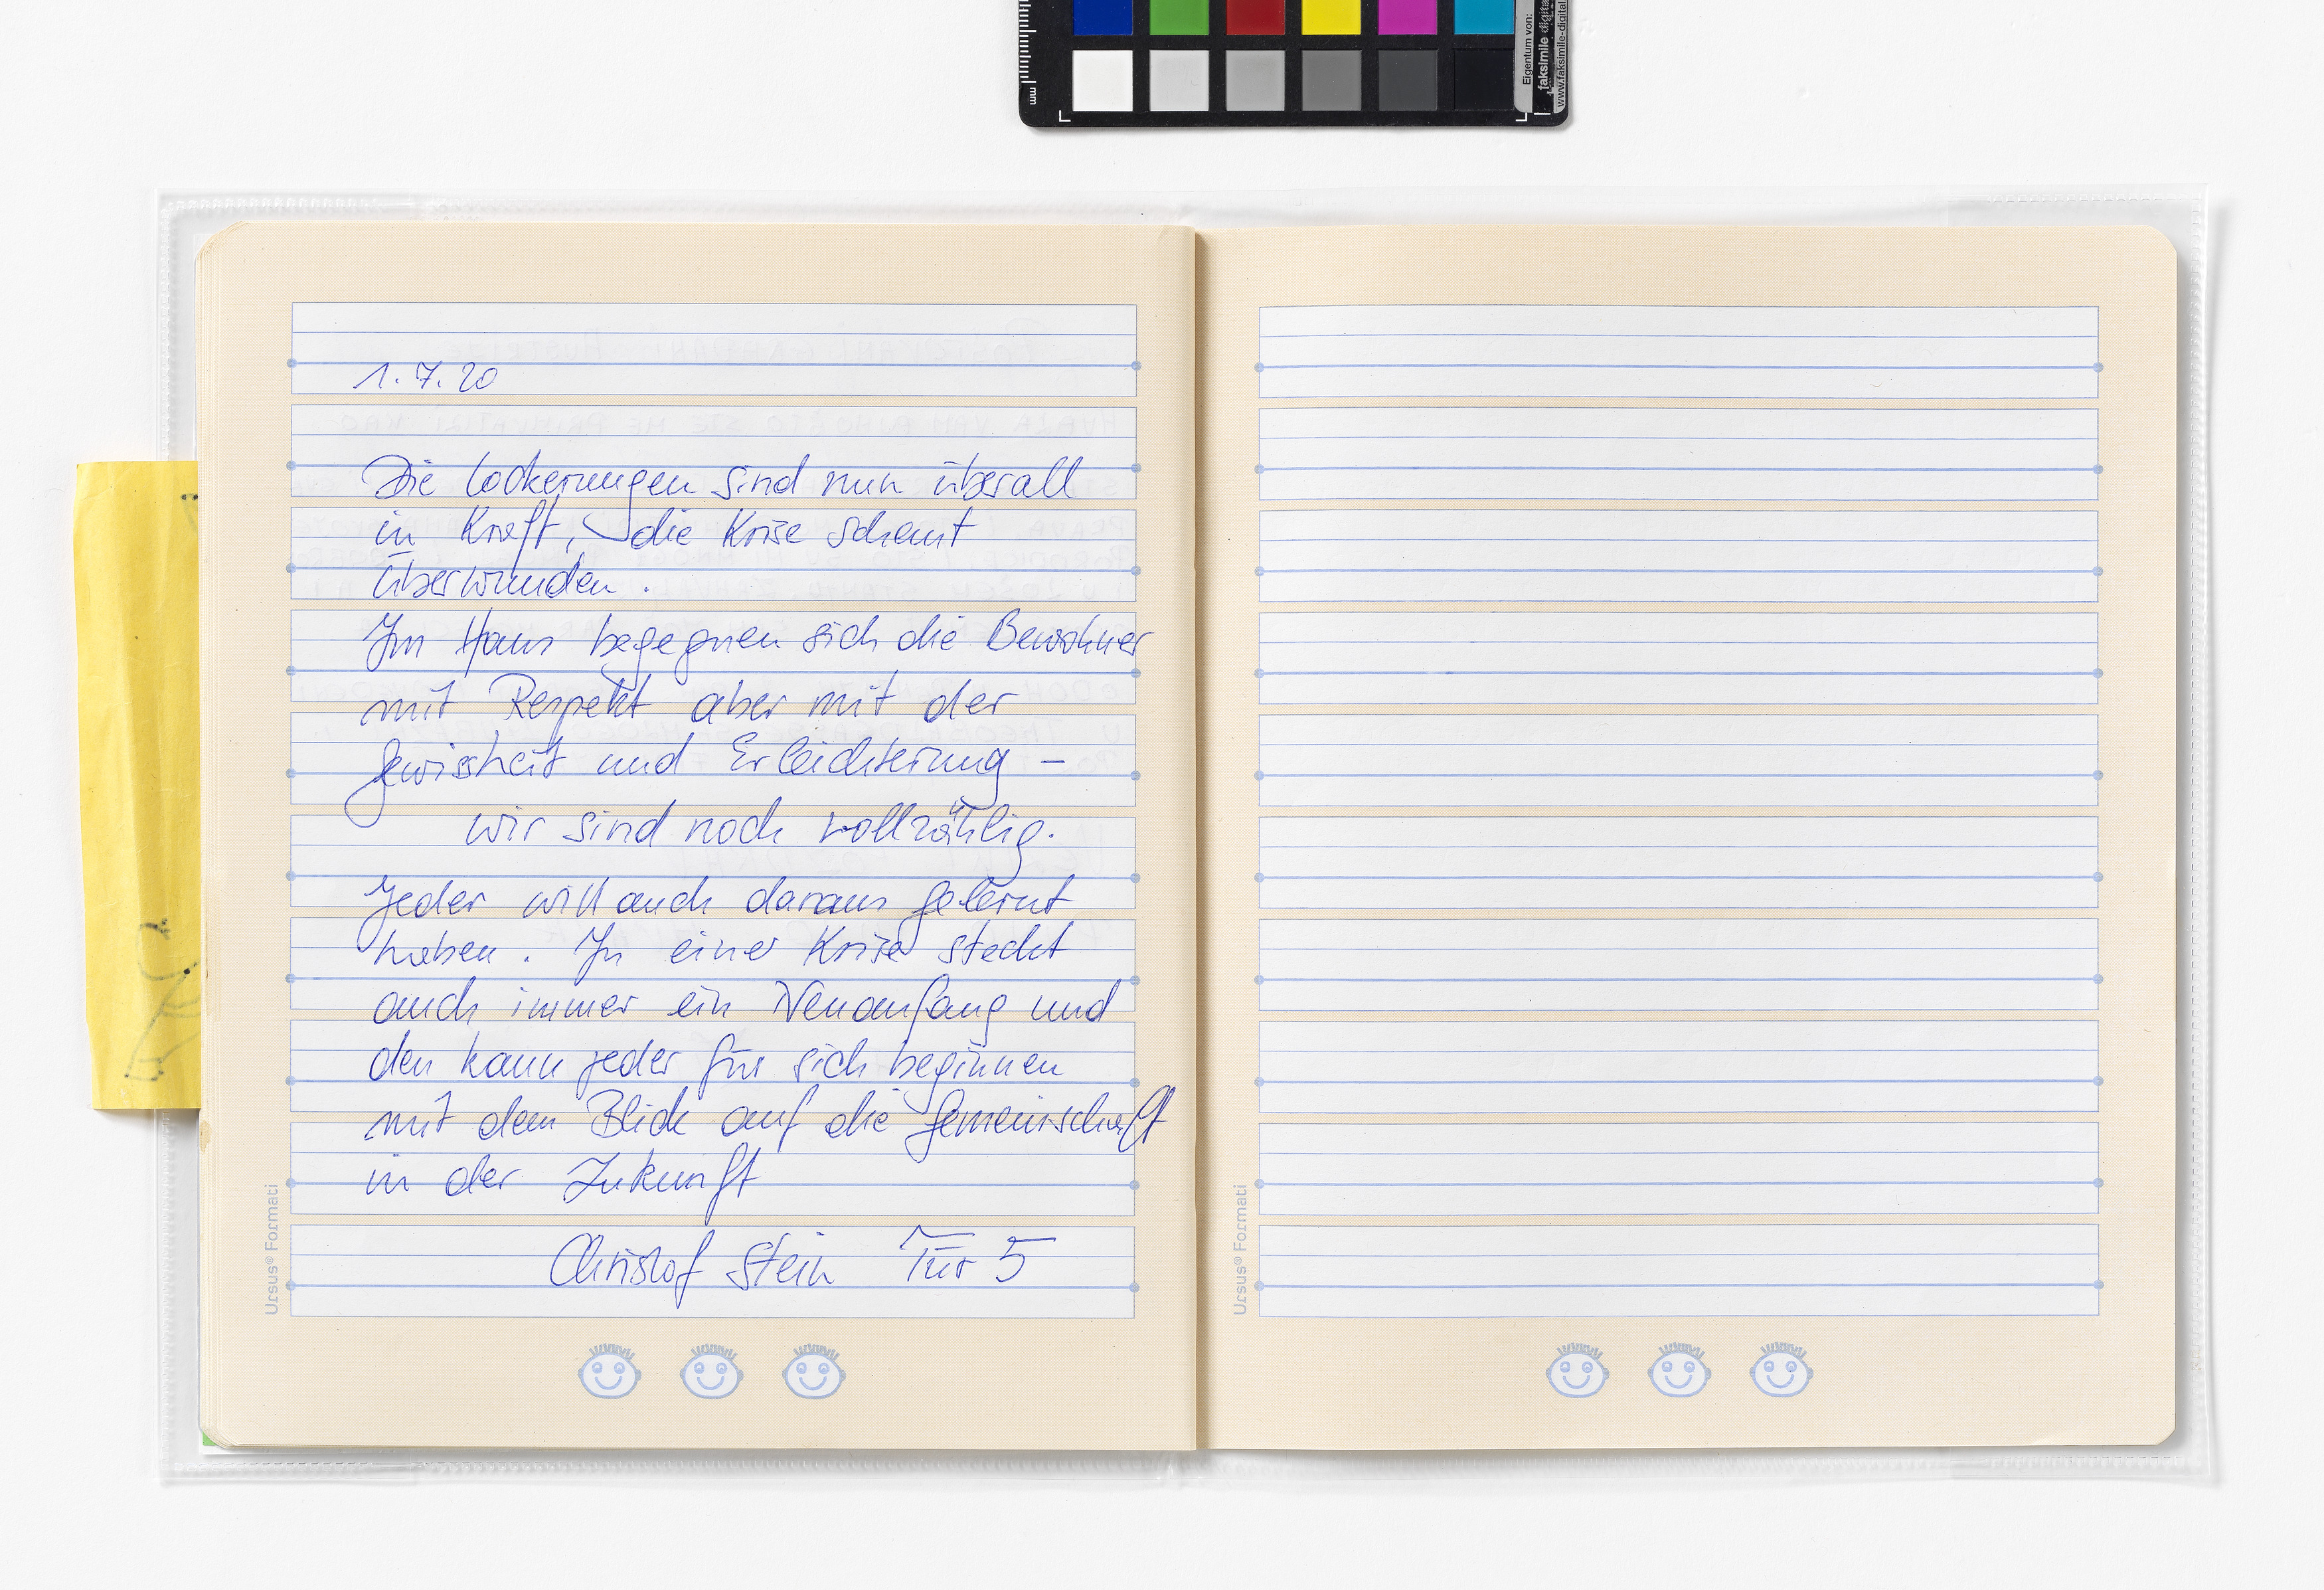 Eigentum von:
faksimile digital
www.faksimile-digital
mm
1.7.20
Die Lockerungen sind nun überall
in Kraft, die Krise scheint
überwunden.
Im Haus begegnen sich die Bewohner
mit Respekt aber mit der
Gewissheit und Erleichterung –
wir sind noch vollzählig.
Jeder will auch daraus gelernt
haben. In einer Krise steckt
auch immer ein Neuanfang und
den kann jeder für sich beginnen
mit dem Blick auf die Gemeinschaft
in der Zukunft
Christof Stein Tür 5
Ursus® Formati
Ursus® Formati